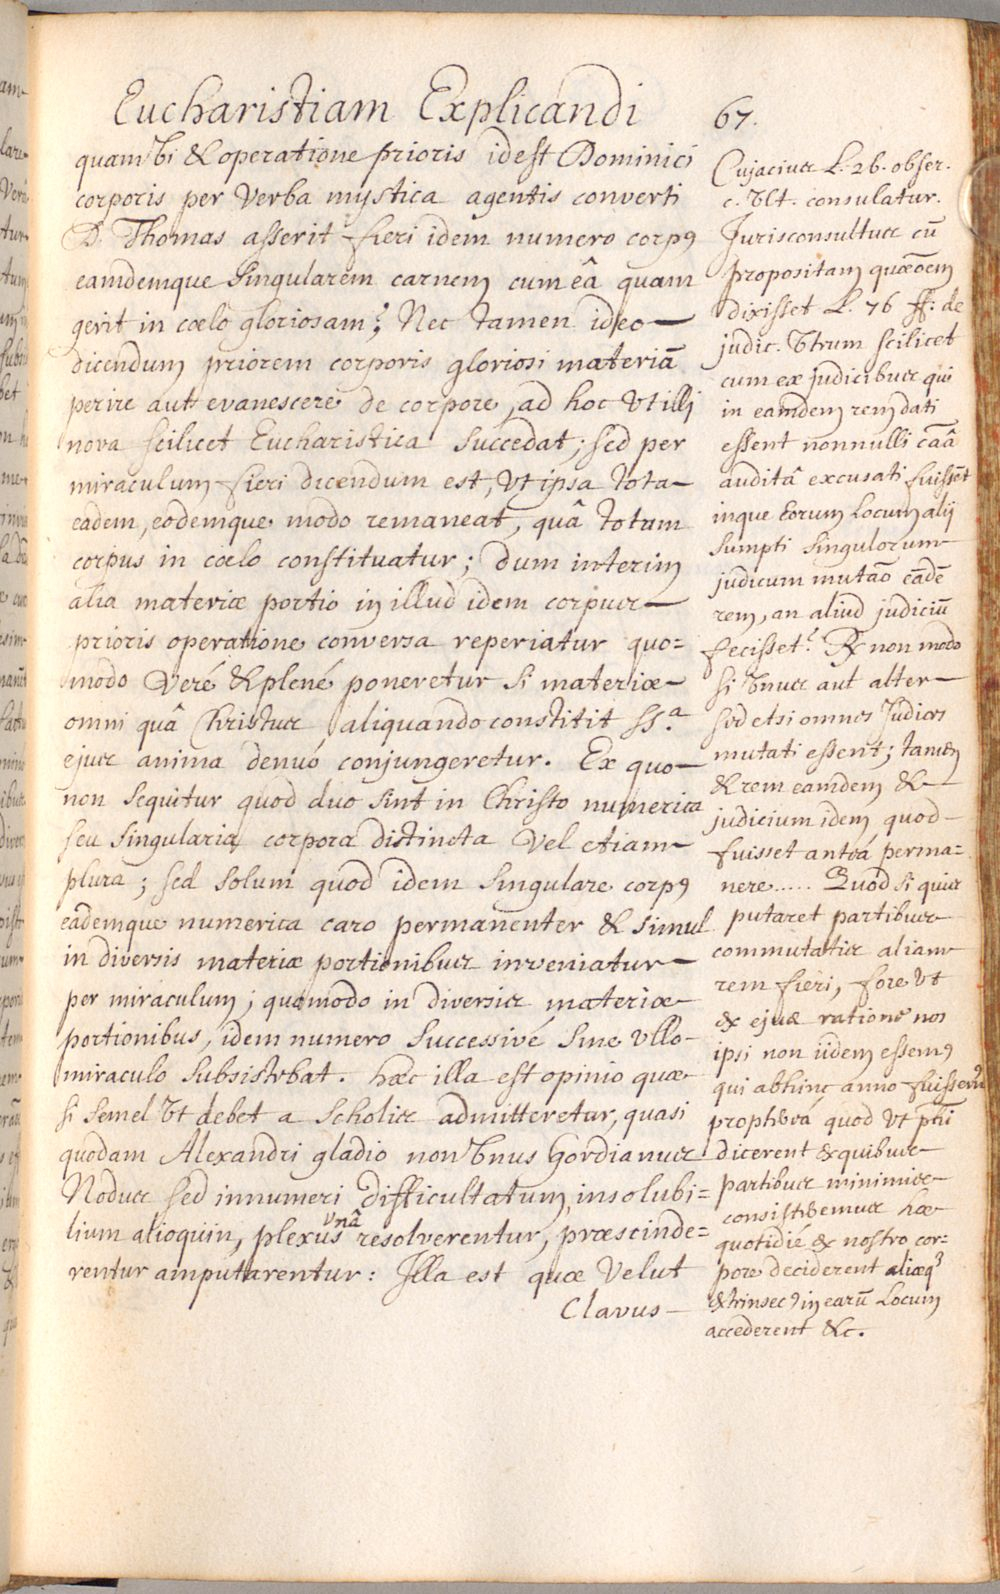 Eucharistiam Explicandi
67.
quam Vi & operatione prioris idest Dominici
corporis per Verba mystica agentis converti
D. Thomas asserit fieri idem numero corpꝰ
eamdemque singularem carnem cum eâ quam
gerit in cœlo gloriosam? Nec tamen ideo
dicendum priorem corporis gloriosi materiā
perire aut evanescere de corpore, ad hoc Vt illi
nova scilicet Eucharistica succedat; sed per
miraculum fieri dicendum est, Vt ipsa tota
eadem, eodemque modo remaneat, quâ totum
corpus in cœlo constituatur; dum interim
alia materiæ portio in illud idem corpus
prioris operatione conversa reperiatur quo=
modo Veré & plené poneretur si materiæ
omni quâ Christus aliquando constitit SS.ª
ejus anima denuó conjungeretur. Ex quo
non sequitur quod duo sint in Christo numerica
seu singularia corpora distincta Vel etiam
plura; sed solum quod idem singulare corpꝰ
eademque numerica caro permanenter & simul
in diversis materiæ portionibus inveniatur
per miraculum; quomodo in diversis materiæ
portionibus, idem numero successivé sine Vllo
miraculo subsistebat. hæc illa est opinio quæ
si semel Vt debet a scholis admitteretur, quasi
quodam Alexandri gladio non Vnus Gordianus
Nodus sed innumeri difficultatum insolubi=
lium alioquin, plexus Vnâ resolverentur, præscinde=
rentur amputarentur: Illa est quæ Velut
Clavus
Cujacius L. 26. obser.
c. Vlt. consulatur.
Jurisconsultus cū
propositam quæōem
dixisset L. 76 ff. de
judic. Vtrum scilicet
cum ex judicibus qui
in eamdem rem dati
essent nonnulli cāâ
auditâ excusati fuissēt
inque eorum Locum alij
sumpti singulorum
judicum mutaō eādē
rem, an aliud judiciū
fecisset? ℞ non modo
si Vnus aut alter
sed etsi omnes Judices
mutati essent; tamen
& rem eamdem &
judicium idem quod
fuisset anteá perma=
nere..... Quod si quis
putaret partibus
commutatis aliam
rem fieri, fore Vt
& ejus ratione nos
ipsi non iidem essemꝰ
qui abhinc anno fuissemꝰ
proptereá quod Vt phī
dicerent ex quibus
partibus minimis
consisteremus hæ
quotidié ex nostro cor=
pore deciderent aliæq3
extrinsecꝰ in earū Locum
accederent &c.